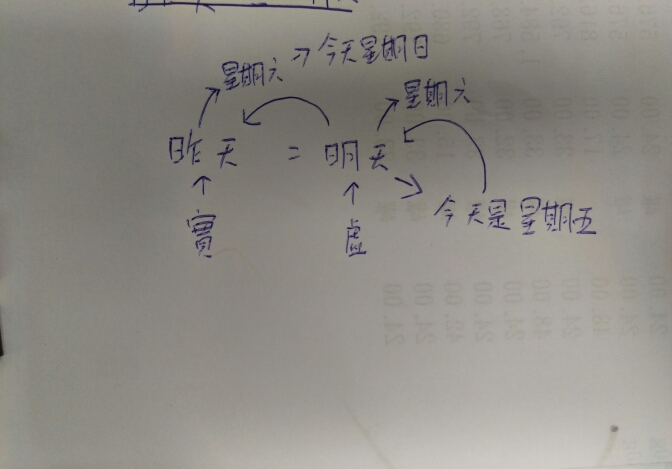 星期六→今天星期日
星期六
昨天 = 明天
今天是星期五
實 虛